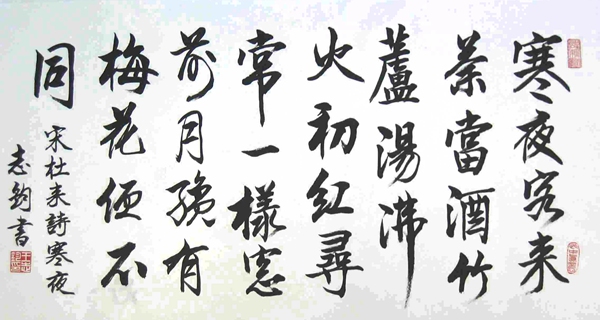 寒夜客来
茶當酒竹
蘆湯沸
火初紅尋
常一樣窓
前月纔有
梅花便不
同
宋杜耒詩寒夜
志鈞書